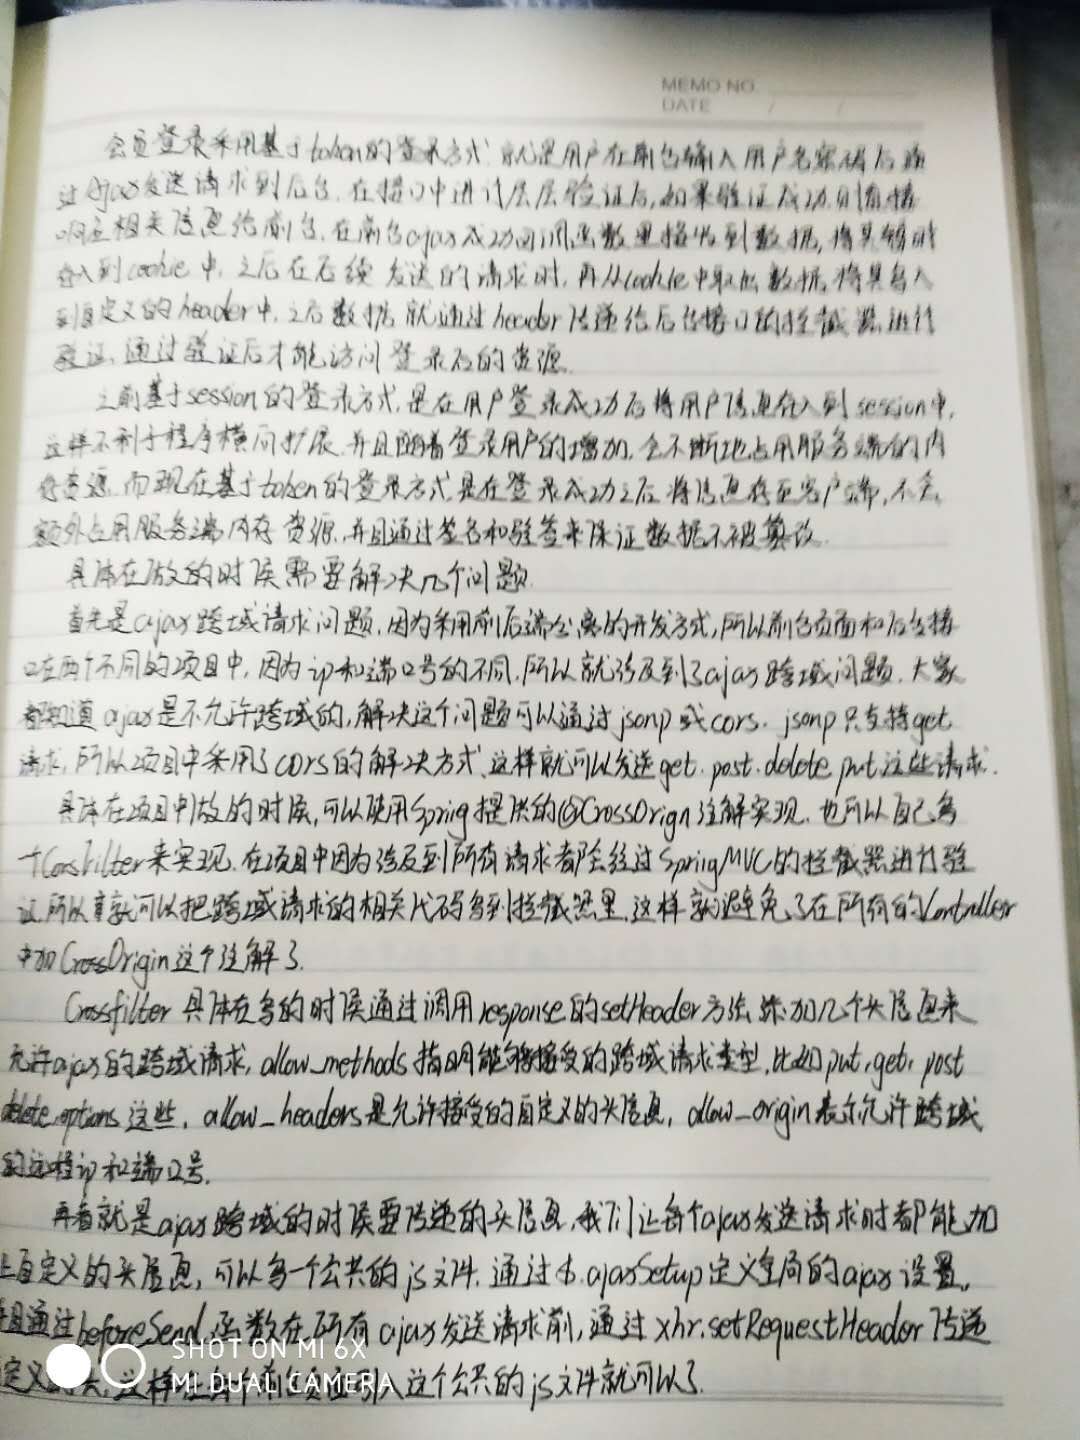 MEMO NO.
DATE / /
会员登录采用基于token的登录方式,就是用户在前台输入用户名密码后通
过Ajax发送请求到后台,在接口中进行层层验证后,如果验证成功,则直接
响应相关信息给前台,在前台ajax成功回调函数里接收到数据,将其临时
存入到cookie中,之后在后续发送的请求时,再从cookie中取出数据,将其写入
到自定义的header中,之后数据就通过header传递给后台接口的拦截器进行
验证,通过验证后才能访问登录后的资源.
之前基于session的登录方式,是在用户登录成功后将用户信息存入到session中,
这样不利于程序横向扩展,并且随着登录用户的增加,会不断地占用服务端的内
存资源,而现在基于token的登录方式是在登录成功之后将信息存至客户端,不会
额外占用服务端内存资源,并且通过签名和验签来保证数据不被篡改.
具体在做的时候需要解决几个问题.
首先是ajax跨域请求问题,因为采用前后端分离的开发方式,所以前台页面和后台接
口在两个不同的项目中,因为ip和端口号的不同,所以就涉及到了ajax跨域问题.大家
都知道ajax是不允许跨域的,解决这个问题可以通过jsonp或cors. jsonp只支持get
请求,所以项目中采用了cors的解决方式,这样就可以发送get.post.delete put这些请求.
具体在项目中做的时候,可以使用Spring提供的@CrossOrign注解实现,也可以自己写
个CorsFilter来实现.在项目中因为涉及到所有请求都会经过SpringMVC的拦截器进行验
证,所以就可以把跨域请求的相关代码写到拦截器里,这样就避免了在所有的Controller
中加CrossOrigin这个注解了.
Crossfilter具体在写的时候通过调用response的setHeader方法添加几个头信息来
允许ajax的跨域请求, allow_methods指明能够接受的跨域请求类型,比如put,get,post
delete,options这些, allow_headers是允许接受的自定义的头信息, allow_origin表示允许跨域
的远程ip和端口号.
再者就是ajax跨域的时候要传递的头信息,我们让每个ajax发送请求时都能加
上自定义的头信息,可以写一个公共的js文件,通过$.ajaxSetup定义全局的ajax设置,
并且通过beforeSend函数在所有ajax发送请求前,通过xhr.setRequestHeader传递
定义的头,这样让每个前台页面引入这个公共的js文件就可以了.
SHOT ON MI 6X
MI DUAL CAMERA